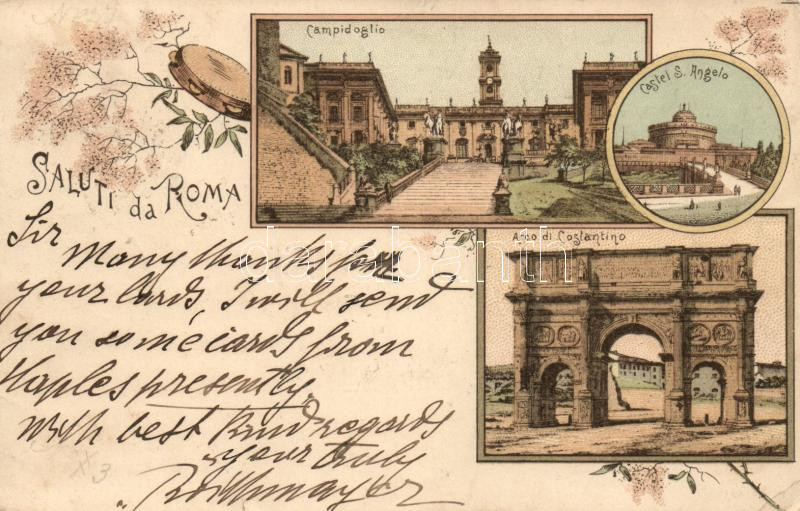 Campidoglio
Castel S. Angelo
SALUTI da ROMA
Arco di Costantino
darabanth
Sir
Many thanks for
your Cards, I will send
you some cards from
Naples presently,
with best kind regards
your truly